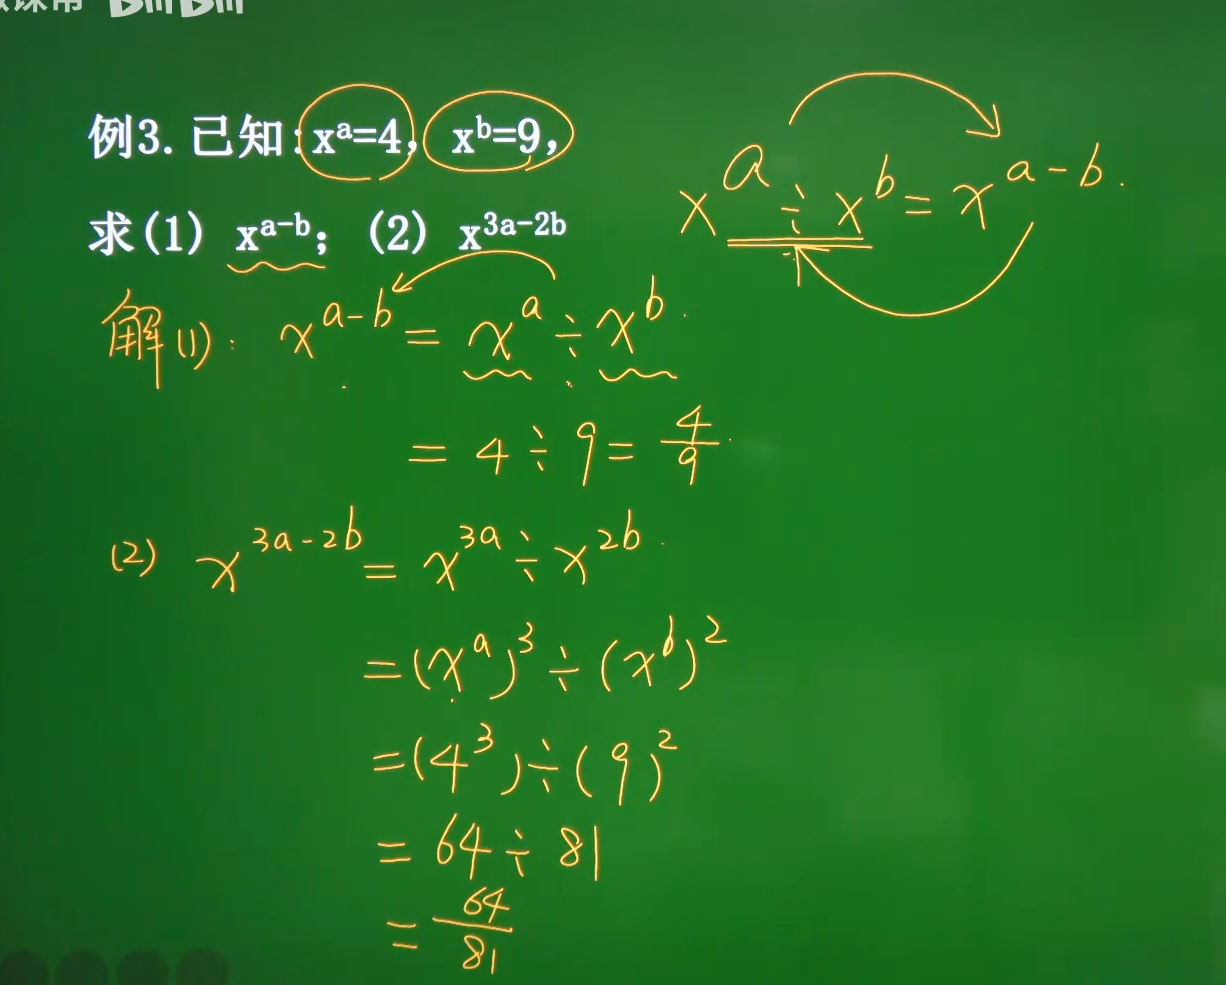 bilibili
例3.已知:xᵃ=4, xᵇ=9,
求(1) xᵃ⁻ᵇ; (2) x³ᵃ⁻²ᵇ
xᵃ÷xᵇ=xᵃ⁻ᵇ.
解(1): xᵃ⁻ᵇ=xᵃ÷xᵇ.
=4÷9=4/9.
(2) x³ᵃ⁻²ᵇ=x³ᵃ÷x²ᵇ.
=(xᵃ)³÷(xᵇ)²
=(4³)÷(9)²
=64÷81
=64/81